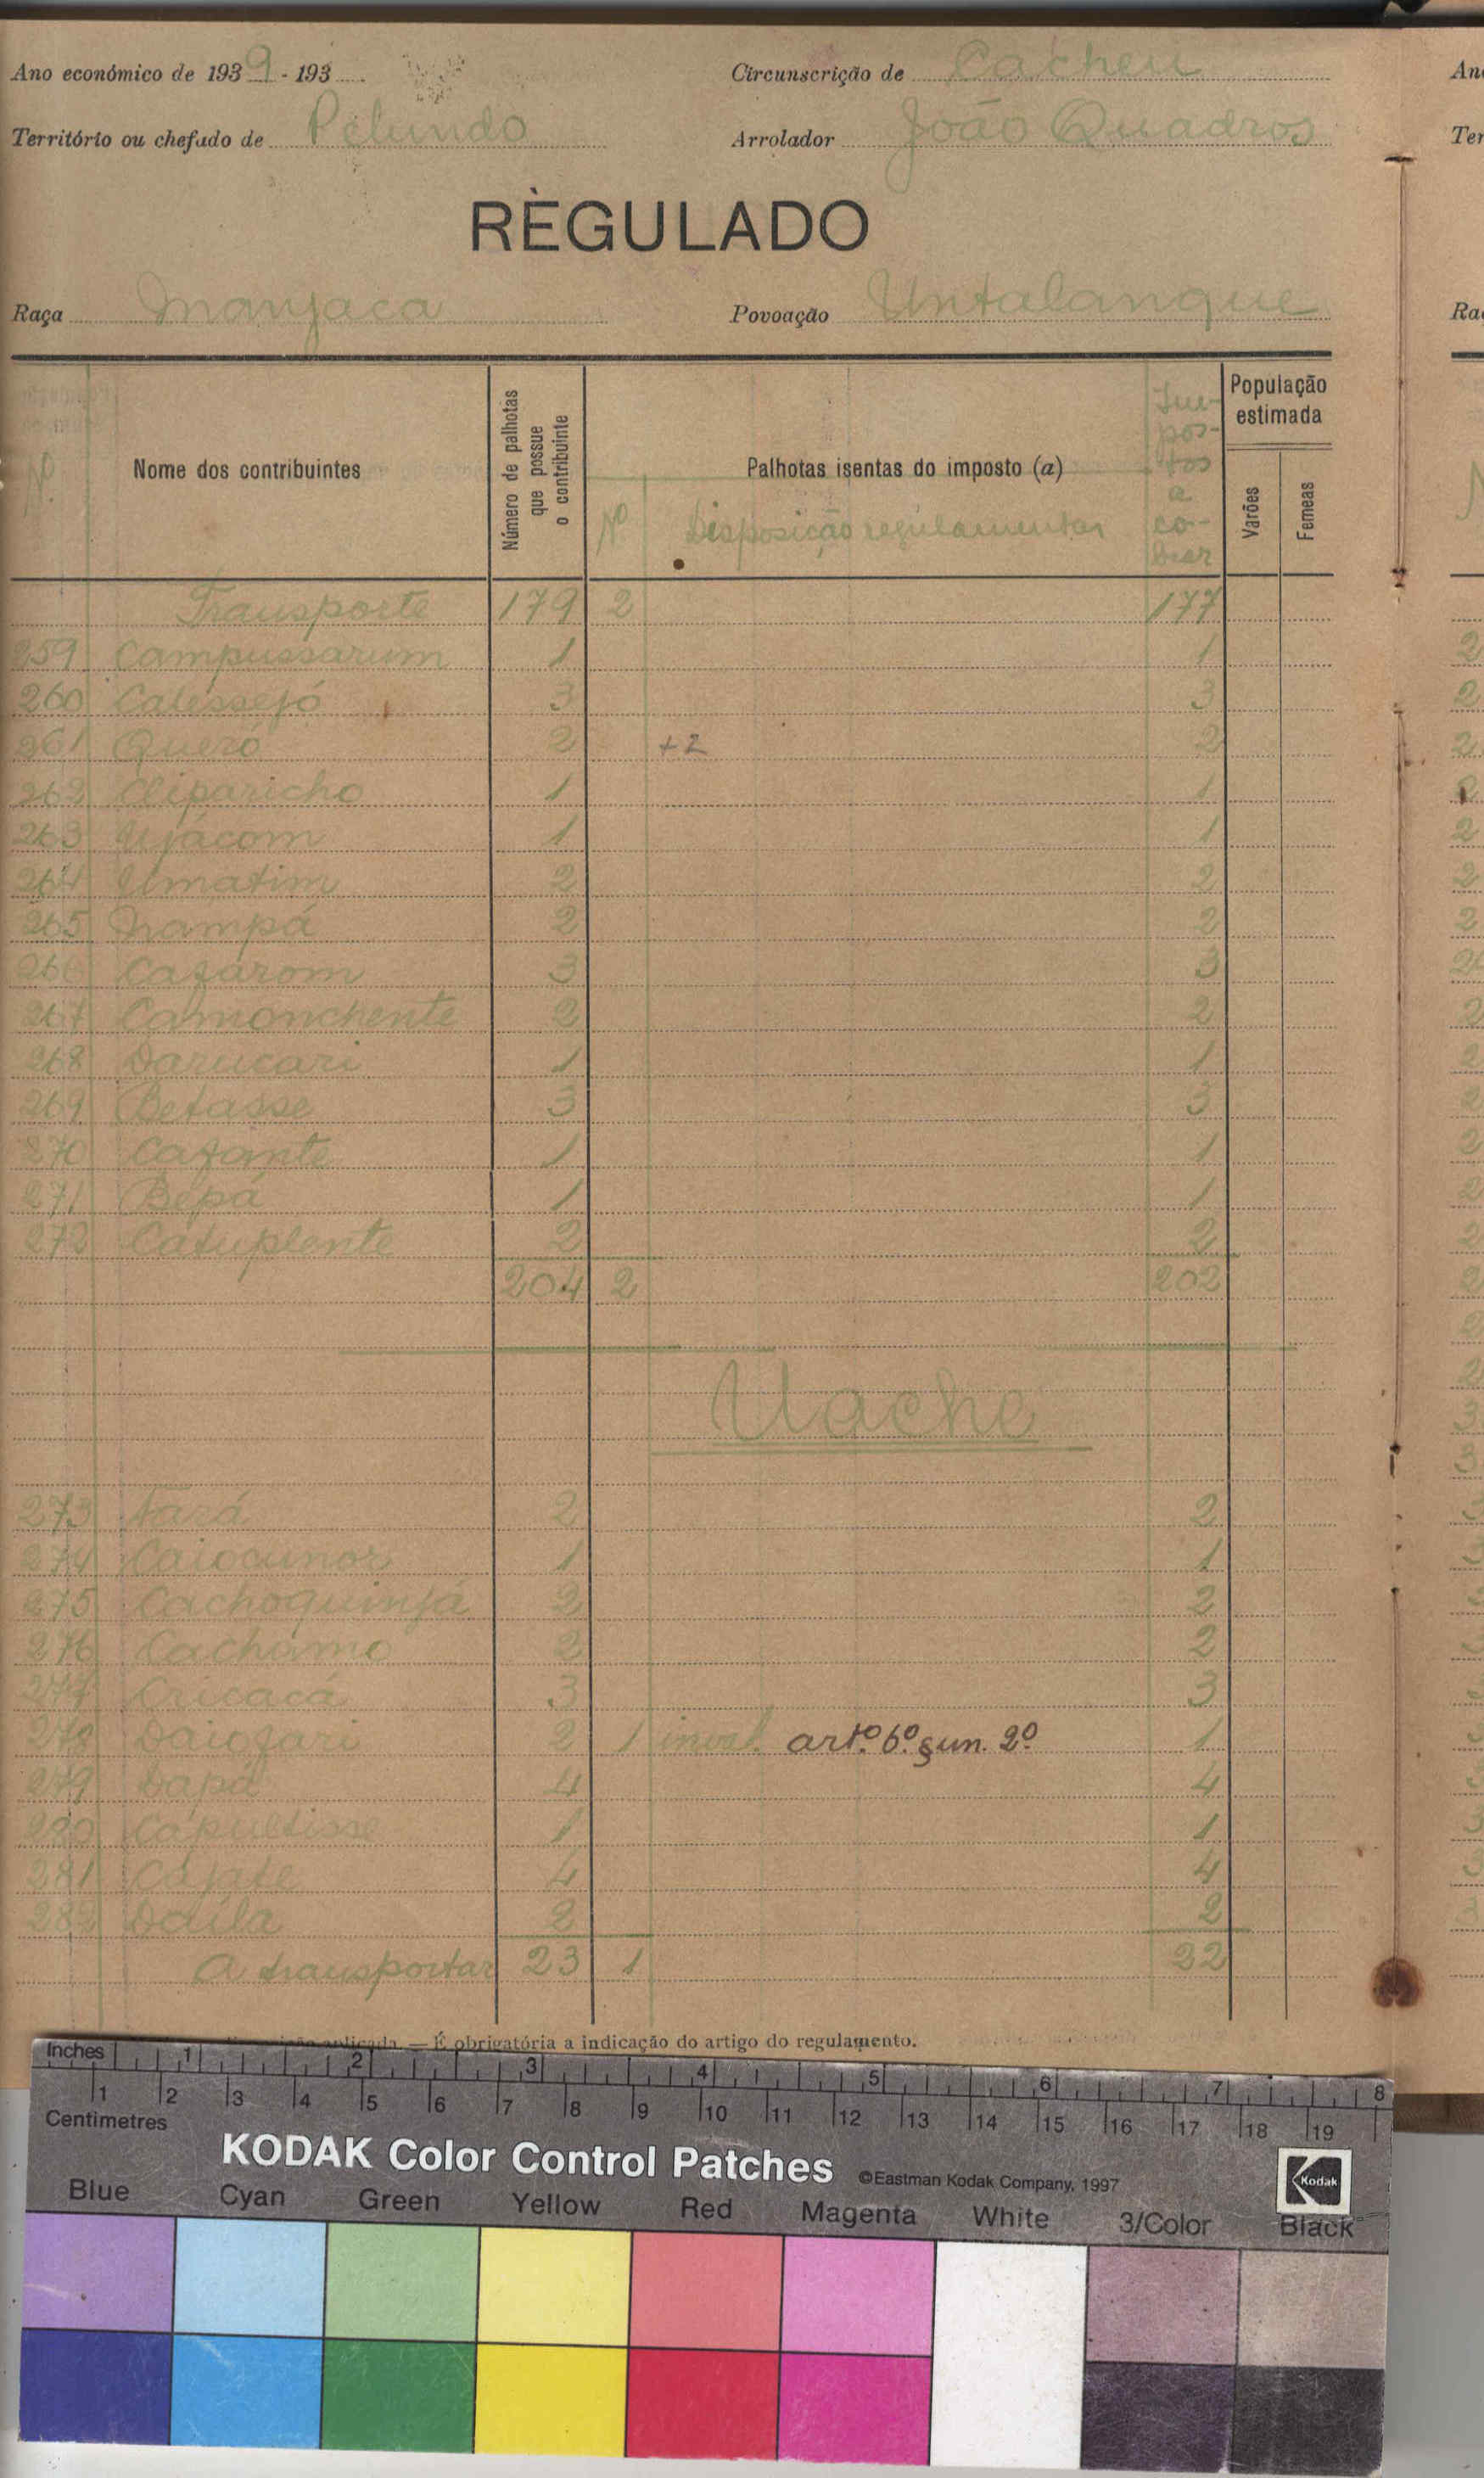 Ano económico de 1939 - 193.....
Circunscrição de Cacheu
Território ou chefado de Pelundo
Arrolador João Quadros
RÈGULADO
Raça Manjaca
Povoação Untalanque
Nº
Nome dos contribuintes
Número de palhotas que possue o contribuinte
Palhotas isentas do imposto (a)
Nº Disposição regulamentar
Im-
pos-
tos
a
co-
brar
População estimada
Varões
Femeas
Transporte 179 2 177
259 Campussarum 1 1
260 Catessejó 3 3
261 Queró 2 +2 2
262 Cliparicho 1 1
263 Ujácom 1 1
264 Umatim 2 2
265 Nampá 2 2
266 Cafárom 3 3
267 Camonchente 2 2
268 Darucari 1 1
269 Betasse 3 3
270 Cafante 1 1
271 Bepá 1 1
272 Catuplente 2 2
204 2 202
Uache
273 Nará 2 2
274 Caiocunor 1 1
275 Cachoquinjá 2 2
276 Cachamo 2 2
277 Cricacá 3 3
278 Daiofari 2 1 inval. artº 6º § un. 2º 1
279 Dapá 4 4
280 Capultisse 1 1
281 Cajate 4 4
282 Daila 2 2
A transportar 23 1 22
aplicada. — É obrigatória a indicação do artigo do regulamento.
Inches 1 2 3 4 5 6 7 8
1 2 3 4 5 6 7 8 9 10 11 12 13 14 15 16 17 18 19
Centimetres
KODAK Color Control Patches ©Eastman Kodak Company, 1997 Kodak
Blue Cyan Green Yellow Red Magenta White 3/Color Black